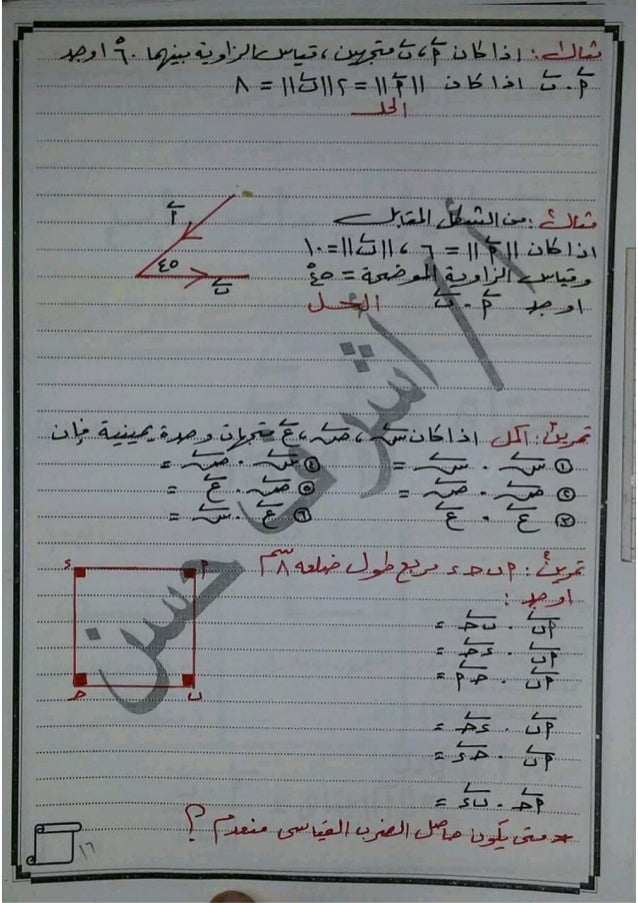 مثال: اذا كان أ ، ب متجهين ، قياس الزاوية بينهما ٦٠° اوجد
أ . ب اذا كان ||أ|| = ٢||ب|| = ٨
الحل
مثال: من الشكل المقابل
اذا كان ||أ|| = ٦ ، ||ب|| = ١٠
وقياس الزاوية الموضحة = ٤٥°
اوجد أ . ب الحل
أ
٤٥
ب
أ / أشرف حسن
تمرين: اكمل اذا كان س ، ص ، ع متجهات وحدة يمينية فإن
① س . س = ④ س . ص =
② ص . ص = ⑤ ص . ع =
③ ع . ع ⑥ ع . س =
تمرين: أ ب ح ء مربع طول ضلعه ٨ سم
اوجد :
ء أ
ح ب
أب . ب ح =
أب . ء ح =
أب . ح أ =
أب . ء ح =
أب . ح ء =
أح . ب ء =
* متى يكون حاصل الضرب القياسى منعدم ؟
١٦